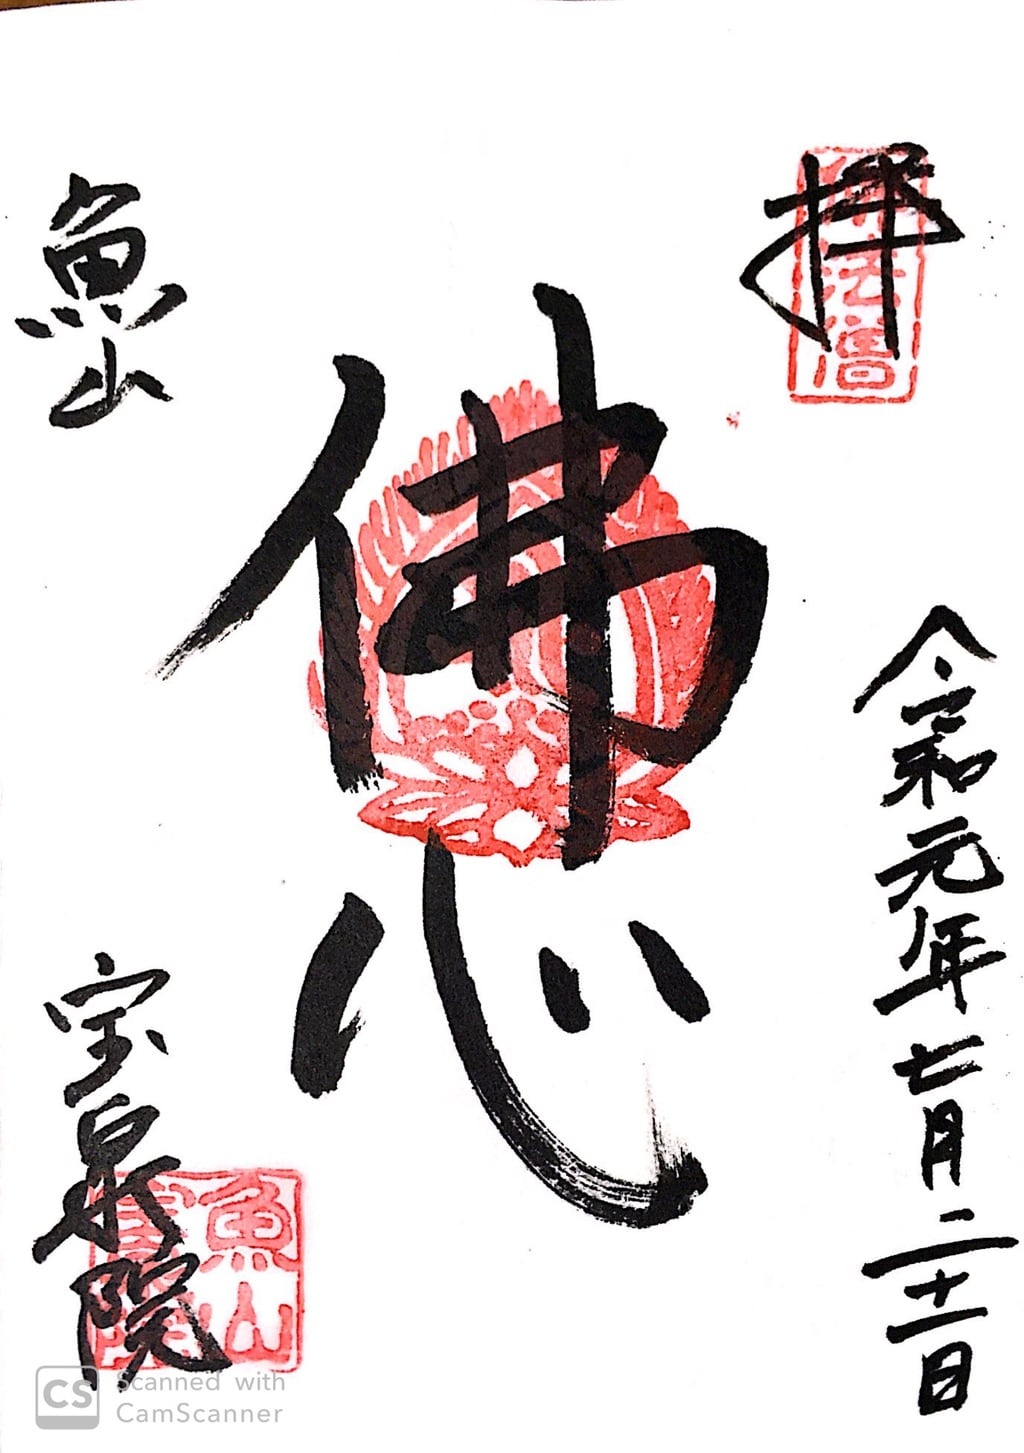 拝
佛法僧
令和元年七月二十一日
佛心
魚山
宝泉院
魚山
Scanned with
CamScanner
CS